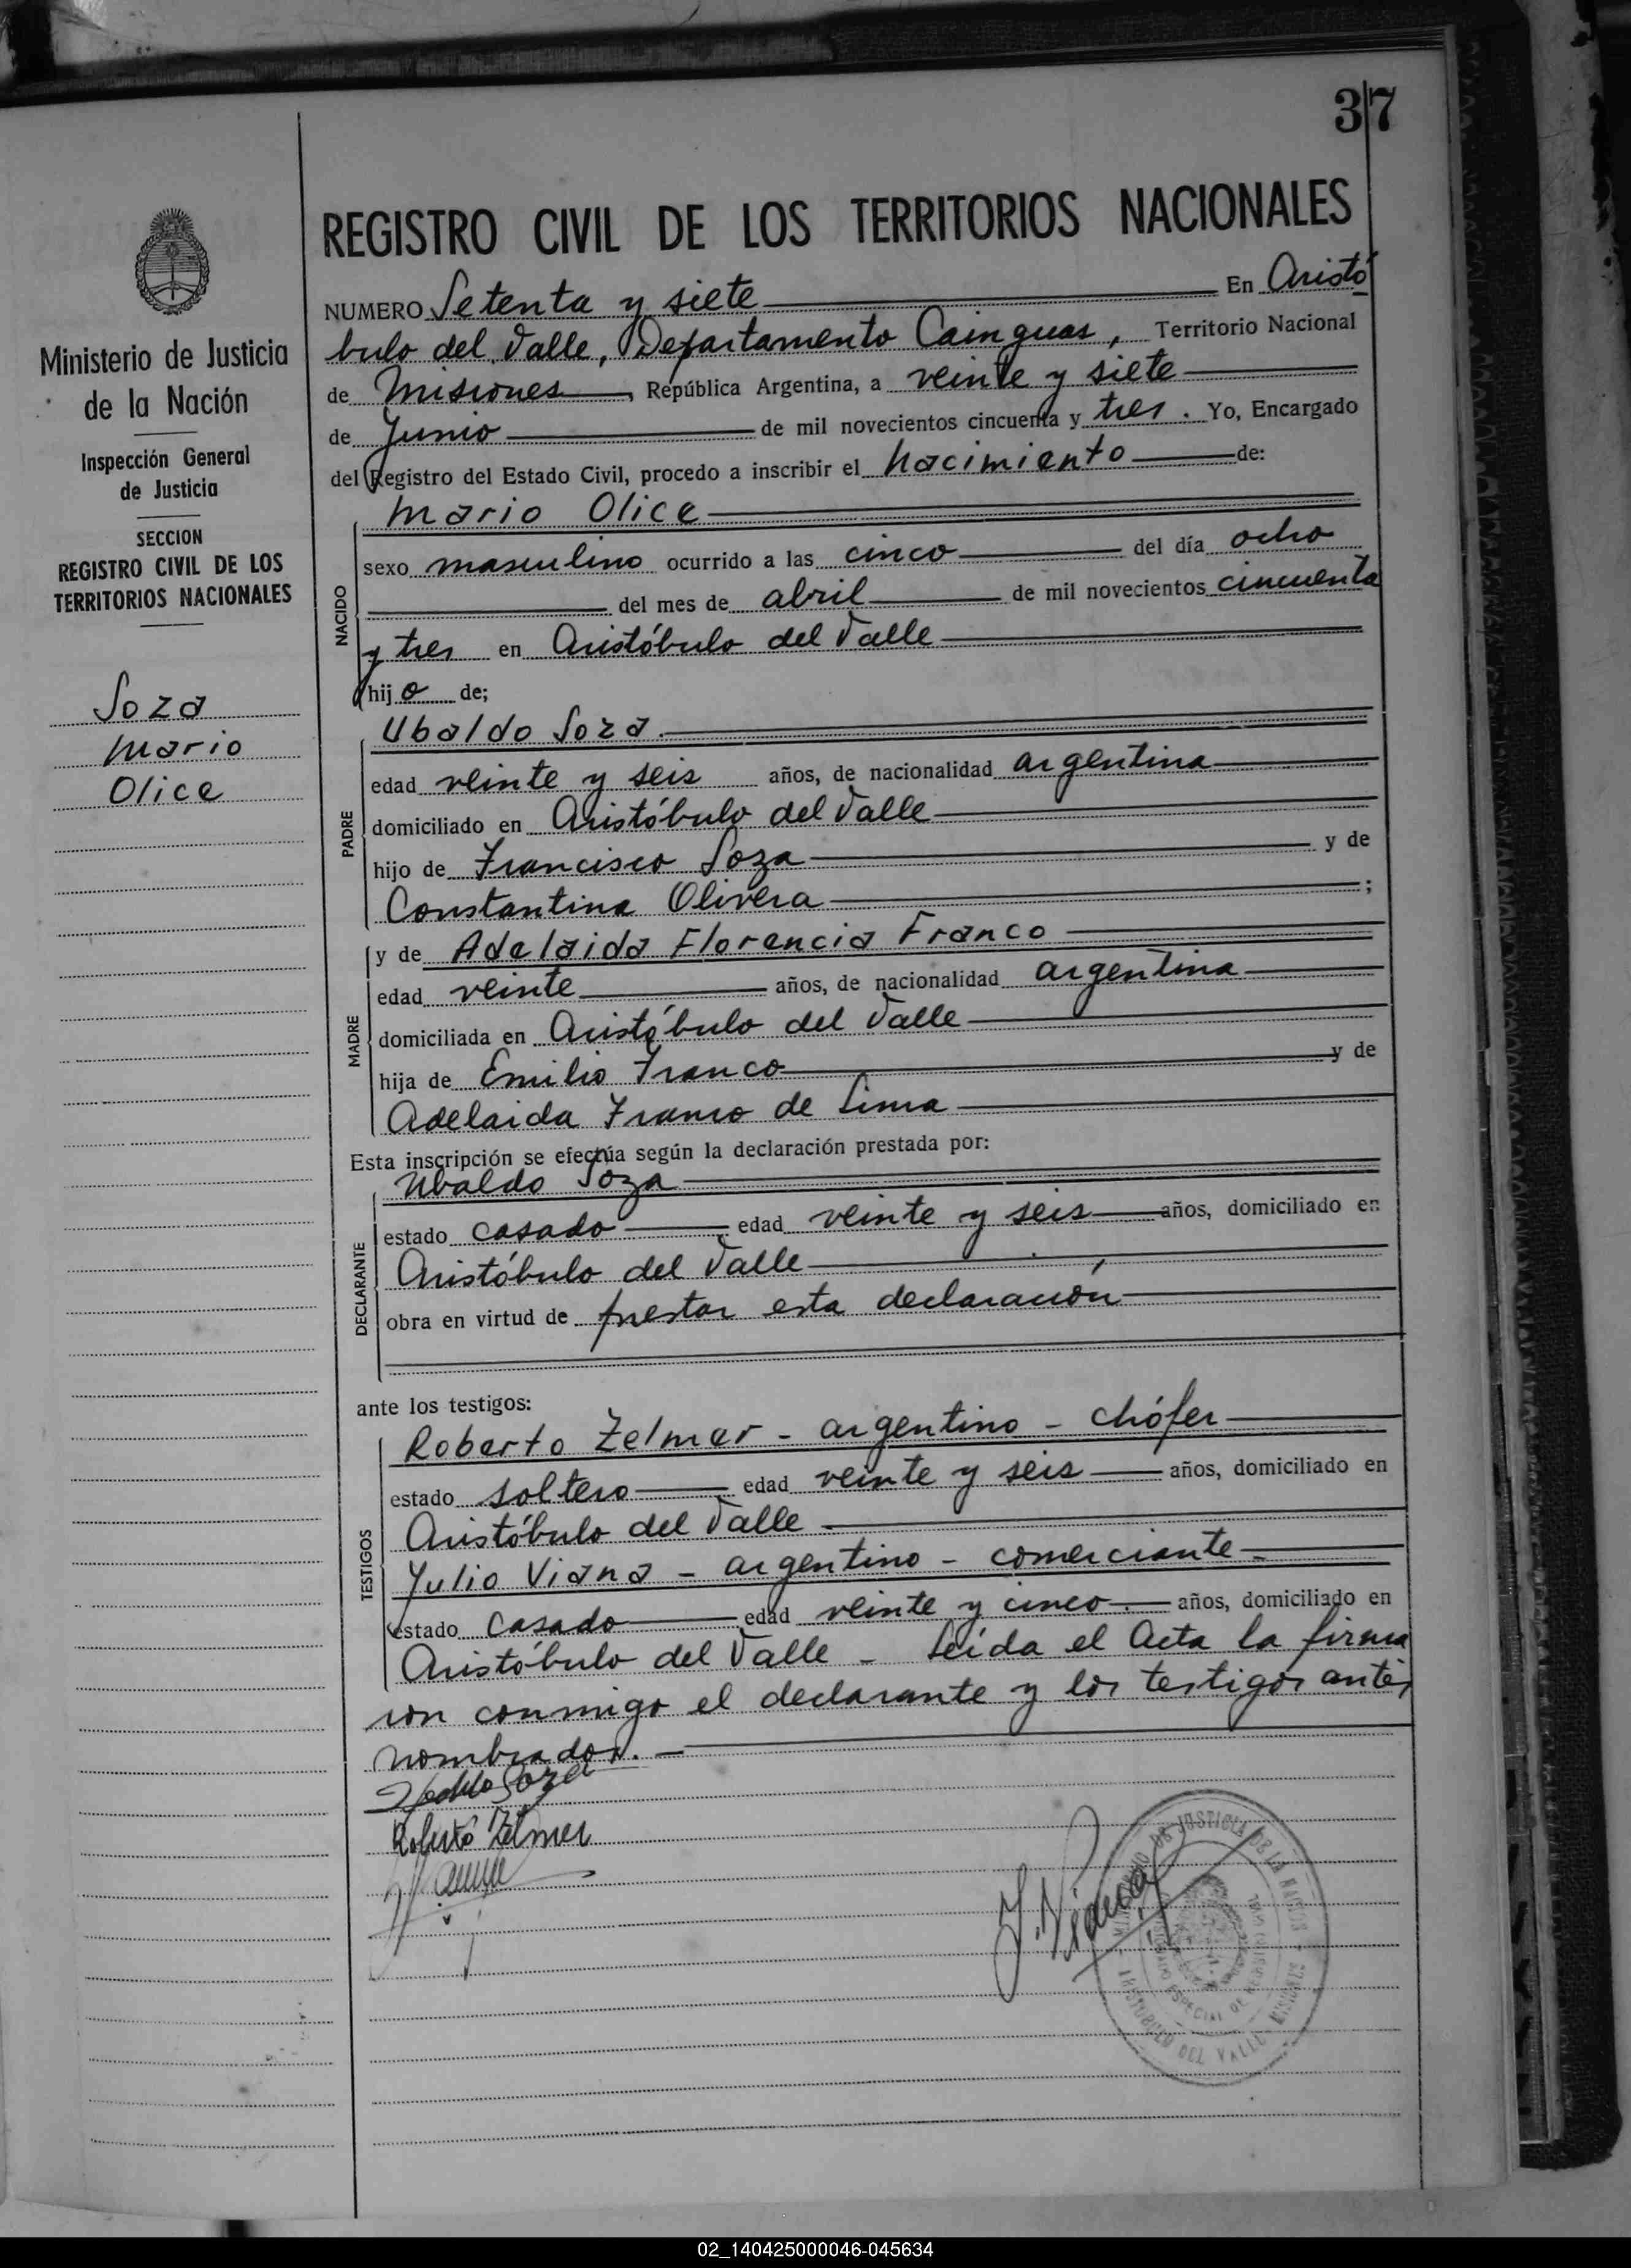 37
REGISTRO CIVIL DE LOS TERRITORIOS NACIONALES
NUMERO Setenta y siete En Aristó
bulo del Valle, Departamento Cainguas, Territorio Nacional
de Misiones, República Argentina, a veinte y siete
de Junio de mil novecientos cincuenta y tres. Yo, Encargado
del Registro del Estado Civil, procedo a inscribir el Nacimiento de:
Mario Olice
sexo masculino ocurrido a las cinco del día ocho
del mes de abril de mil novecientos cincuenta
y tres en Aristóbulo del Valle
hijo de;
NACIDO
Ubaldo Soza.
edad veinte y seis años, de nacionalidad argentina
domiciliado en Aristóbulo del Valle
hijo de Francisco Soza y de
Constantina Olivera ;
PADRE
y de Adelaida Florencia Franco
edad veinte años, de nacionalidad argentina
domiciliada en Aristóbulo del Valle
hija de Emilio Franco y de
Adelaida Franco de Lima
MADRE
Esta inscripción se efectúa según la declaración prestada por:
Ubaldo Soza
estado casado edad veinte y seis años, domiciliado en
Aristóbulo del Valle
obra en virtud de prestar esta declaración
DECLARANTE
ante los testigos:
Roberto Zelmer - argentino - chófer
estado soltero edad veinte y seis años, domiciliado en
Aristóbulo del Valle
Yulio Viana - argentino - comerciante
estado casado edad veinte y cinco. años, domiciliado en
Aristóbulo del Valle - Leída el Acta la firma
ron conmigo el declarante y los testigos antes
nombrados. -
TESTIGOS
Soza
Roberto Zelmer
MINISTERIO DE JUSTICIA DE LA NACION
ESPECIAL DE
ARISTOBULO DEL VALLE MISIONES
Ministerio de Justicia
de la Nación
Inspección General
de Justicia
SECCION
REGISTRO CIVIL DE LOS
TERRITORIOS NACIONALES
Soza
Mario
Olice
02_140425000046-045634